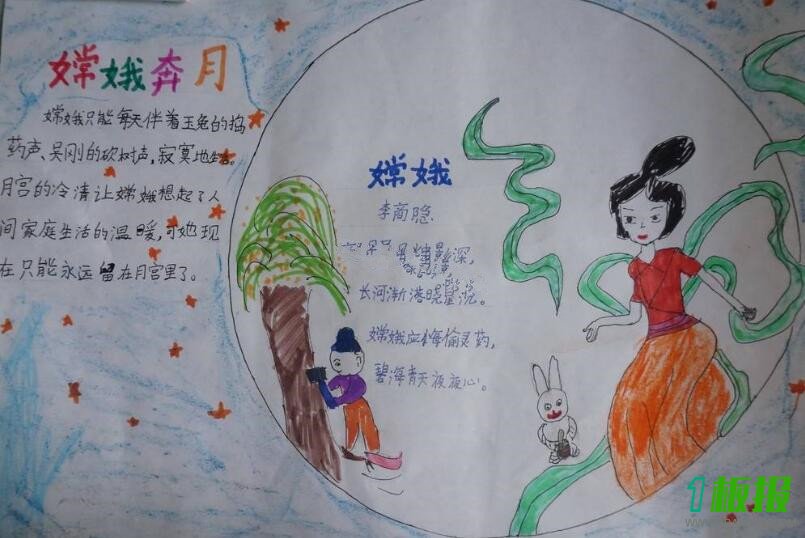 嫦娥奔月
嫦娥只能每天伴着玉兔的捣
药声、吴刚的砍树声,寂寞地
月宫的冷清让嫦娥想起了人
间家庭生活的温暖,可她现
在只能永远留在月宫里了。
嫦娥
李商隐
影深,
长河渐落晓星沉。
嫦娥应悔偷灵药,
碧海青天夜夜心。
1板报